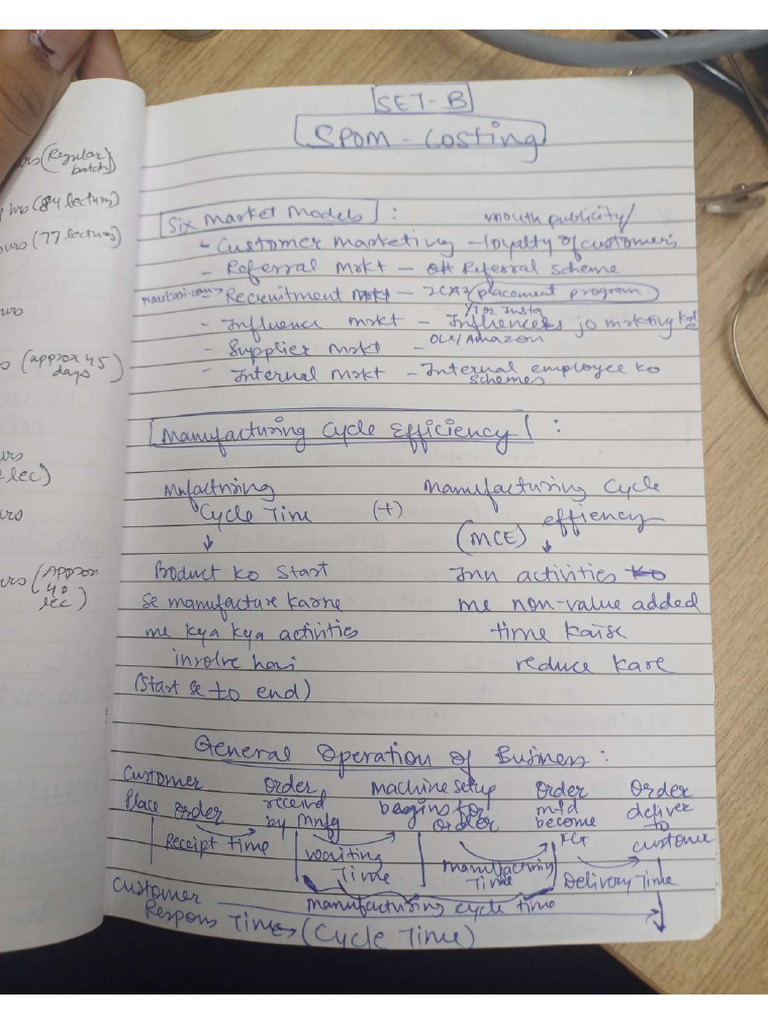 SET-B
SPOM - Costing
Six Market Models :
mouth publicity/
- Customer Marketing - loyalty of customers
- Referral Mrkt - Referral scheme
Naukari.com> Recruitment Mrkt - ICAI (placement program)
YT or Insta
- Influence Mrkt - Influencers jo mrkting
OLX/Amazon
- Supplier Mrkt -
- Internal Mrkt - Internal employee ko
schemes
Manufacturing Cycle Efficiency :
Mnfactnring Manufacturing Cycle
Cycle Time (+) effiency
(MCE)
Product ko Start Inn activities
se manufacture karne me non-value added
me kya kya activities time kaise
involve hai reduce kare
(Start se to end)
General Operation of Business :
Customer Order Machine setup Order Order
Place order receivd begins for mfd deliver
by Mnfg order become to
FG customer
Receipt time
Waiting Manufacturing Delivery Time
Time Time
Customer manufacturing cycle time
Respons Time (Cycle Time)
(Regular
batch)
(84 lectures)
(77 lectures)
(approx 45
days)
lec)
(Approx
40
lec)